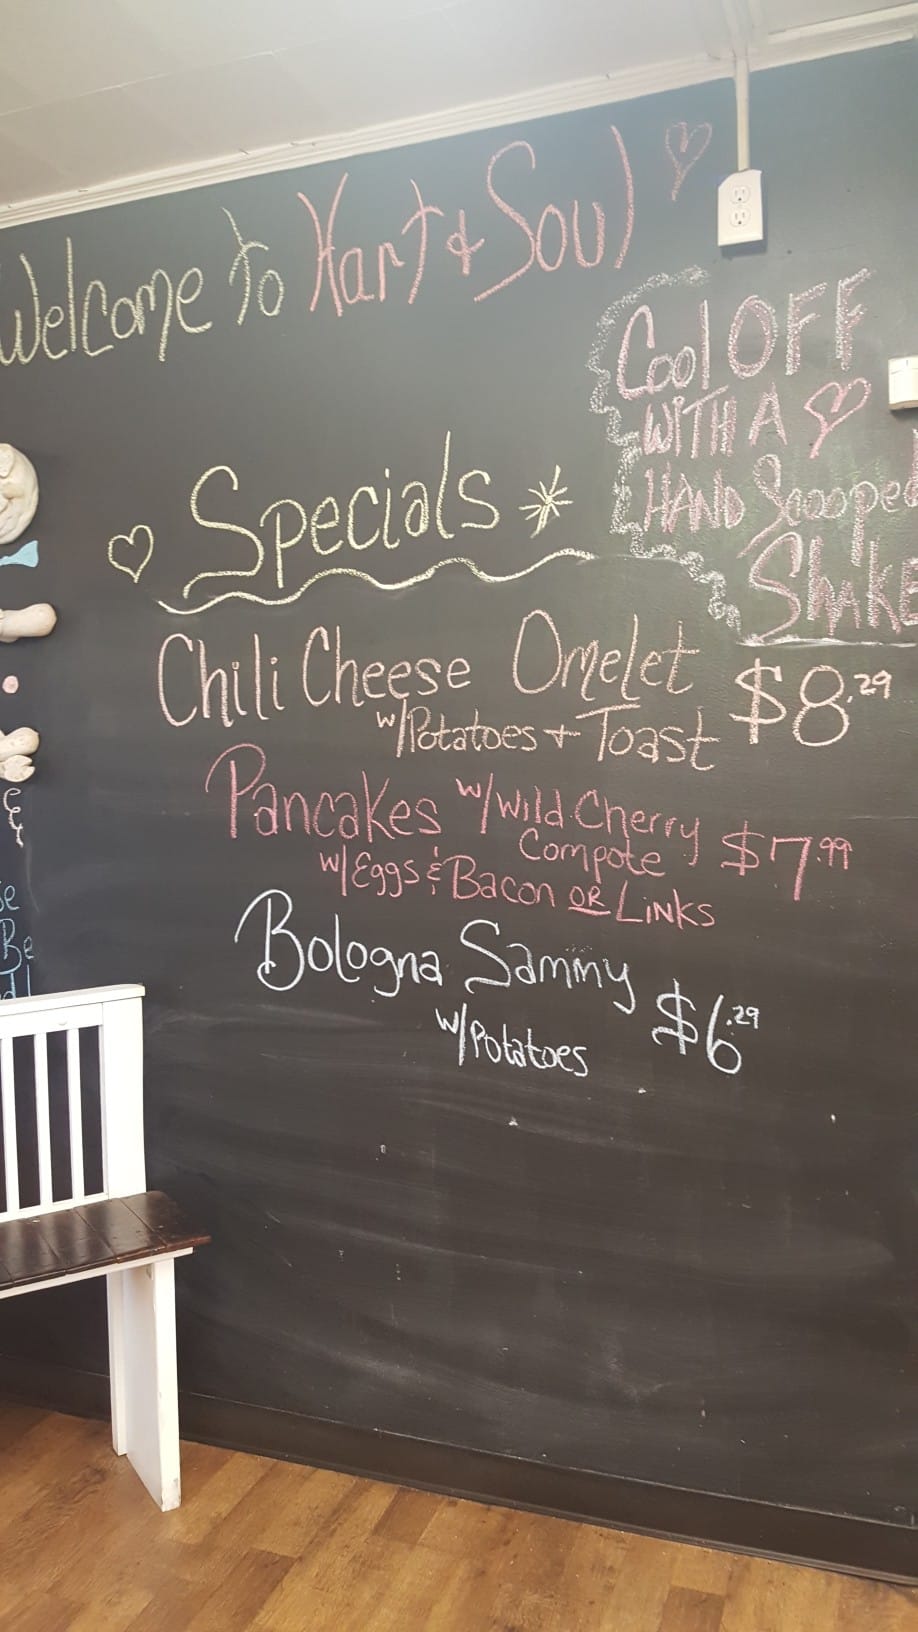 Welcome To Hart & Soul
Cool OFF
WITH A
HAND Scooped
Shake
Specials
Chili Cheese Omelet $8.29
w/Potatoes + Toast
Pancakes w/Wild Cherry
Compote $7.99
w/Eggs & Bacon OR Links
Bologna Sammy $6.29
w/Potatoes
Be